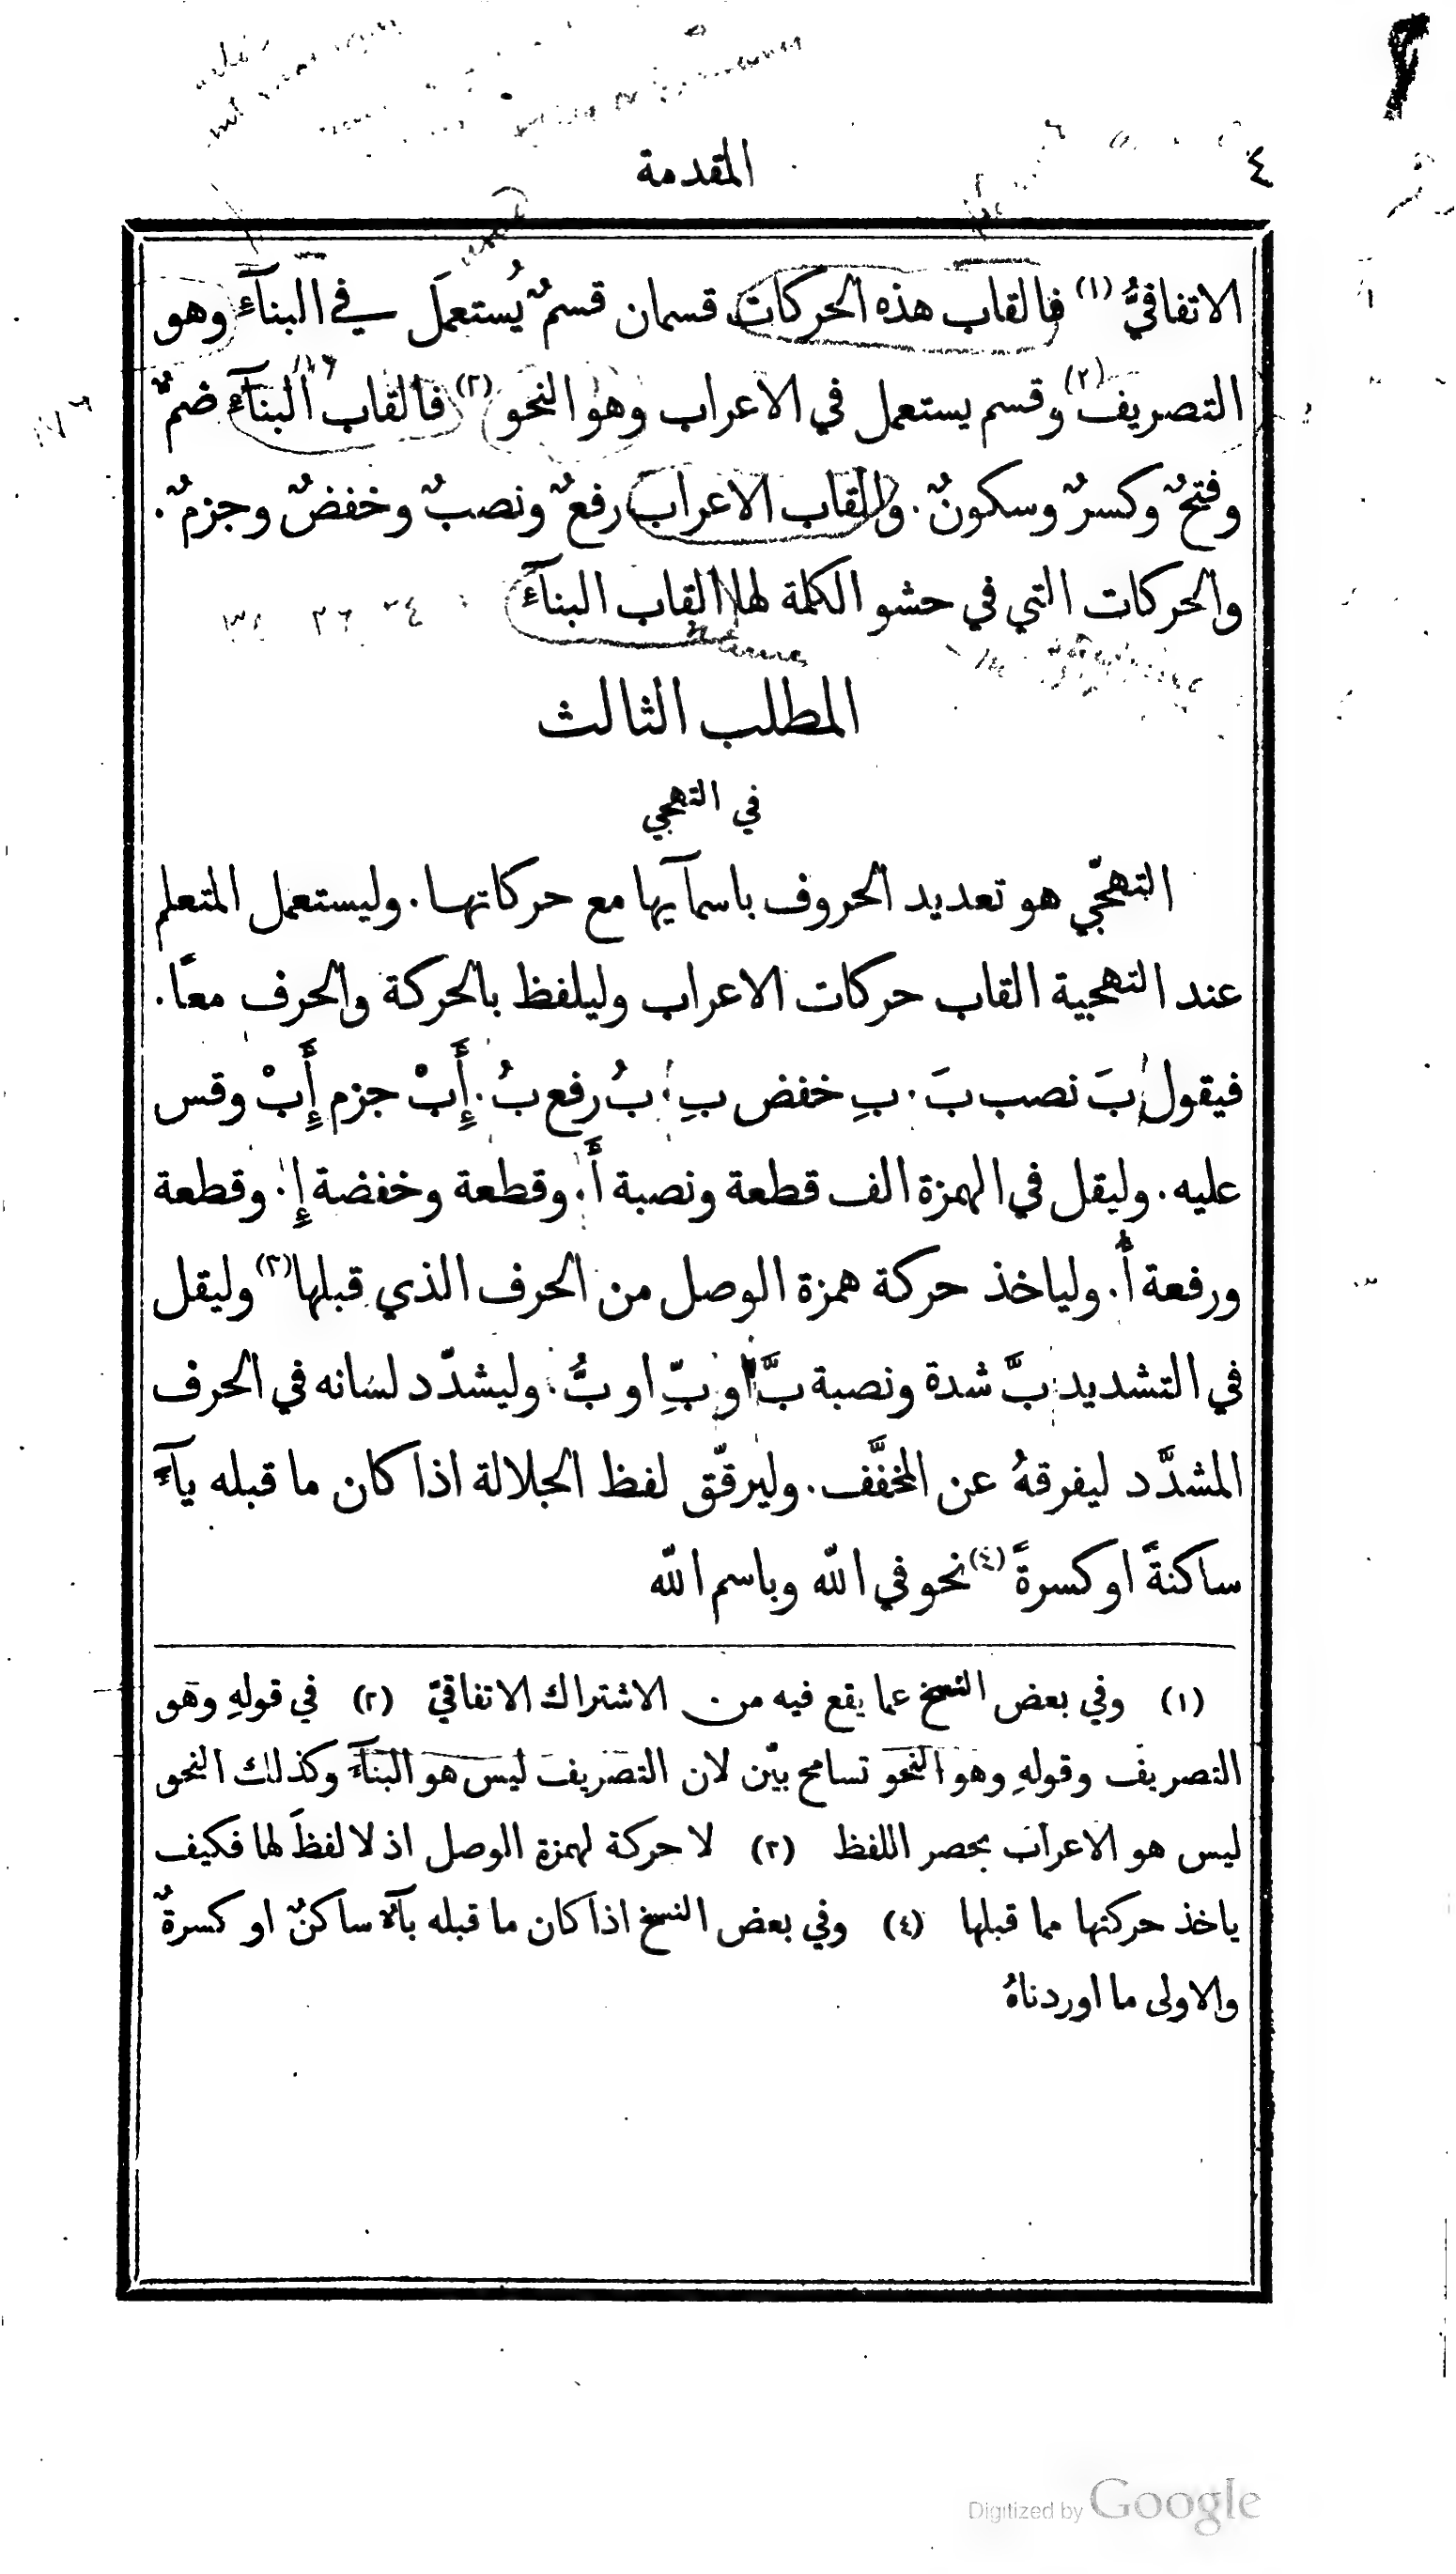 ٤
المقدمة
الاتفاقيُّ (١) فالقاب هذه الحركات قسمان قسمٌ يُستعمَل في البنآءِ وهو
التصريف (٢) وقسم يستعمل في الاعراب وهو النحو (٢) فالقاب البنآءِ ضمٌّ
وفتحٌ وكسرٌ وسكونٌ. والقاب الاعراب رفعٌ ونصبٌ وخفضٌ وجزمٌ.
والحركات التي في حشو الكلمة لها القاب البنآءِ
المطلب الثالث
في التهجي
التهجّي هو تعديد الحروف باسمآيها مع حركاتها. وليستعمل المتعلم
عند التهجية القاب حركات الاعراب وليلفظ بالحركة والحرف معًا.
فيقول بَ نصب بَ. بِ خفض بِ. بُ رفع بُ. أَإِبْ جزم أَإِبْ وقس
عليه. وليقل في الهمزة الف قطعة ونصبة أَ. وقطعة وخفضة إِ. وقطعة
ورفعة أُ. ولياخذ حركة همزة الوصل من الحرف الذي قبلها (٣) وليقل
في التشديد بَّ شدة ونصبة بَّ او بِّ او بُّ. وليشدّد لسانه في الحرف
المشدَّد ليفرقهُ عن المخفَّف. وليرقّق لفظ الجلالة اذا كان ما قبله يآءً
ساكنةً او كسرةً (٤) نحو في الله وباسم الله
(١) وفي بعض النسخ عما يقع فيه من الاشتراك الاتفاقيّ (٢) في قولهِ وهو
التصريف وقولهِ وهو النحو تسامح بيّن لان التصريف ليس هو البنآءَ وكذلك النحو
ليس هو الاعراب بحصر اللفظ (٣) لا حركة لهمزة الوصل اذ لا لفظَ لها فكيف
ياخذ حركتها مما قبلها (٤) وفي بعض النسخ اذا كان ما قبله يآءٌ ساكنٌ او كسرةٌ
والاولى ما اوردناهُ
Digitized by Google